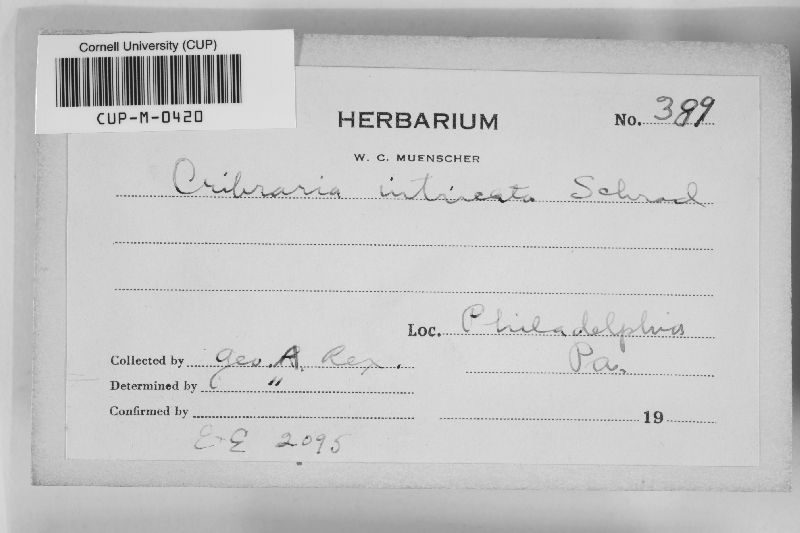 Cornell University (CUP)
CUP-M-0420
HERBARIUM
No. 389
W. C. MUENSCHER
Cribraria intricata Schrad
Loc. Philadelphia
Pa.
Collected by Geo. A. Rex.
Determined by "
Confirmed by
19
E&E 2095